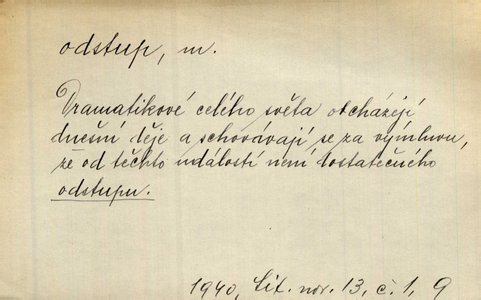 odstup, m.
Dramatikové celého světa obcházejí
dnešní děje a schovávají se za výmluvu,
že od těchto událostí není dostatečného
odstupu.
1940, Lit. nov. 13, č. 1, 9